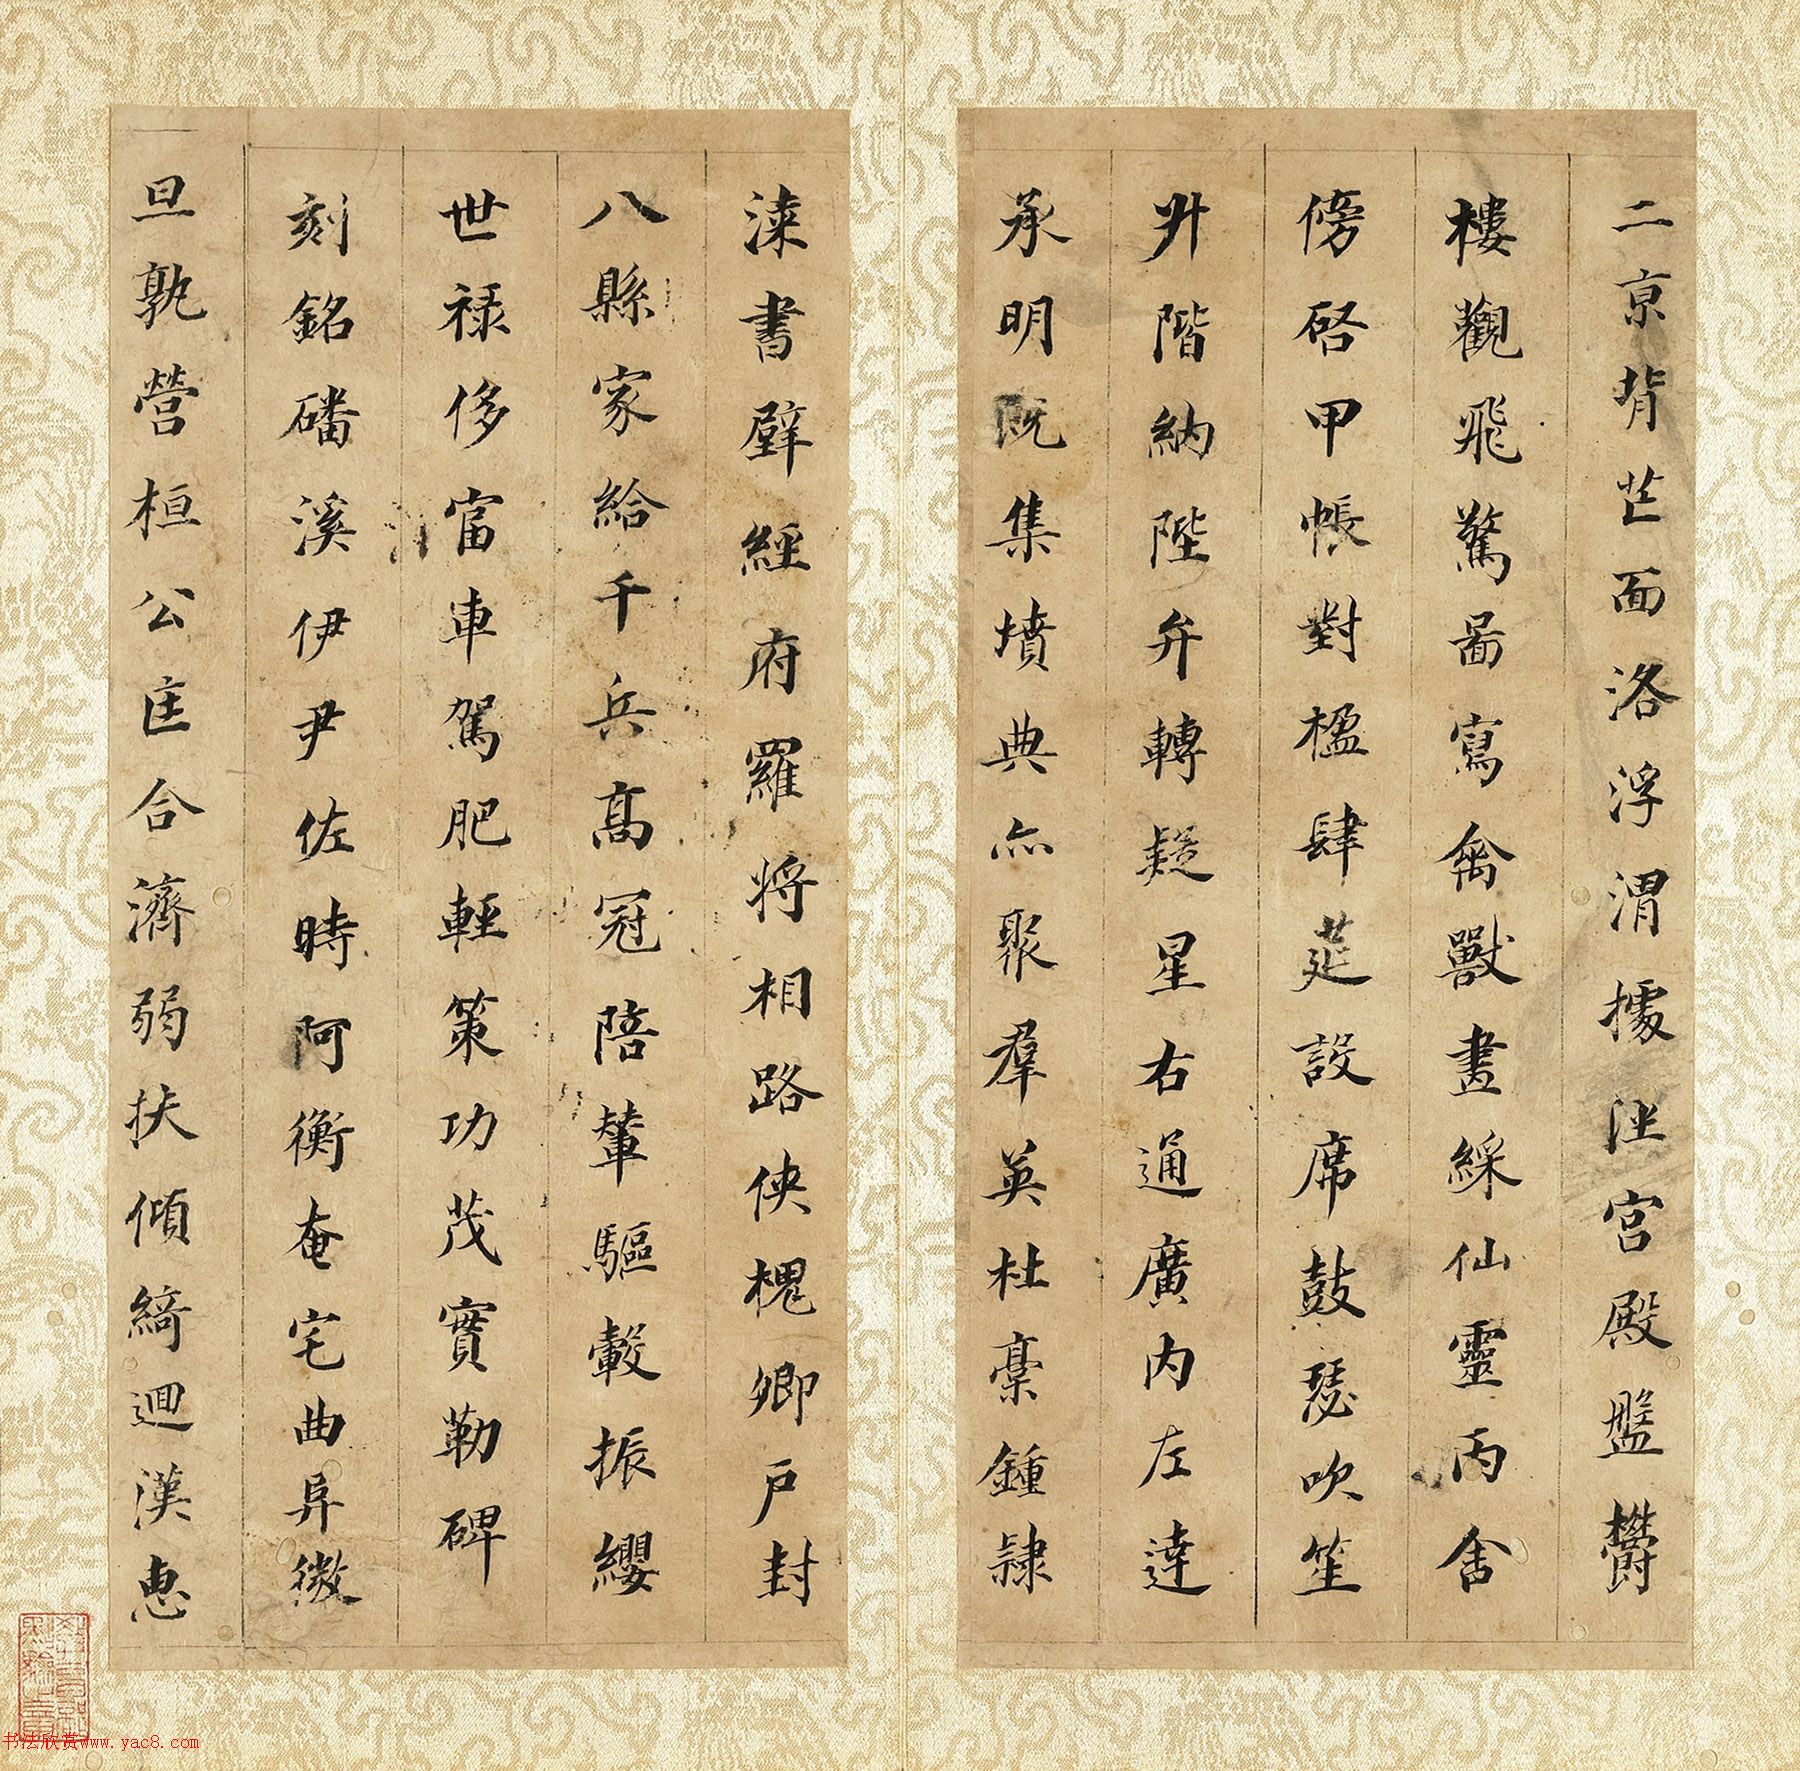 二京背芒面洛浮渭據涇宮殿盤欝
樓觀飛驚啚寫禽獸畫綵仙靈丙舍
傍啓甲帳對楹肆莚設席鼓瑟吹笙
升階納陛弁轉疑星右通廣内左達
承明既集墳典亦聚羣英杜稾鍾隷
漆書壁經府羅将相路俠槐卿戶封
八縣家給千兵髙冠陪輦驅轂振纓
世禄侈富車駕肥輕策功茂實勒碑
刻銘磻溪伊尹佐時阿衡奄宅曲阜微
旦孰營桓公匡合濟弱扶傾綺迴漢惠
书法欣赏www.yac8.com